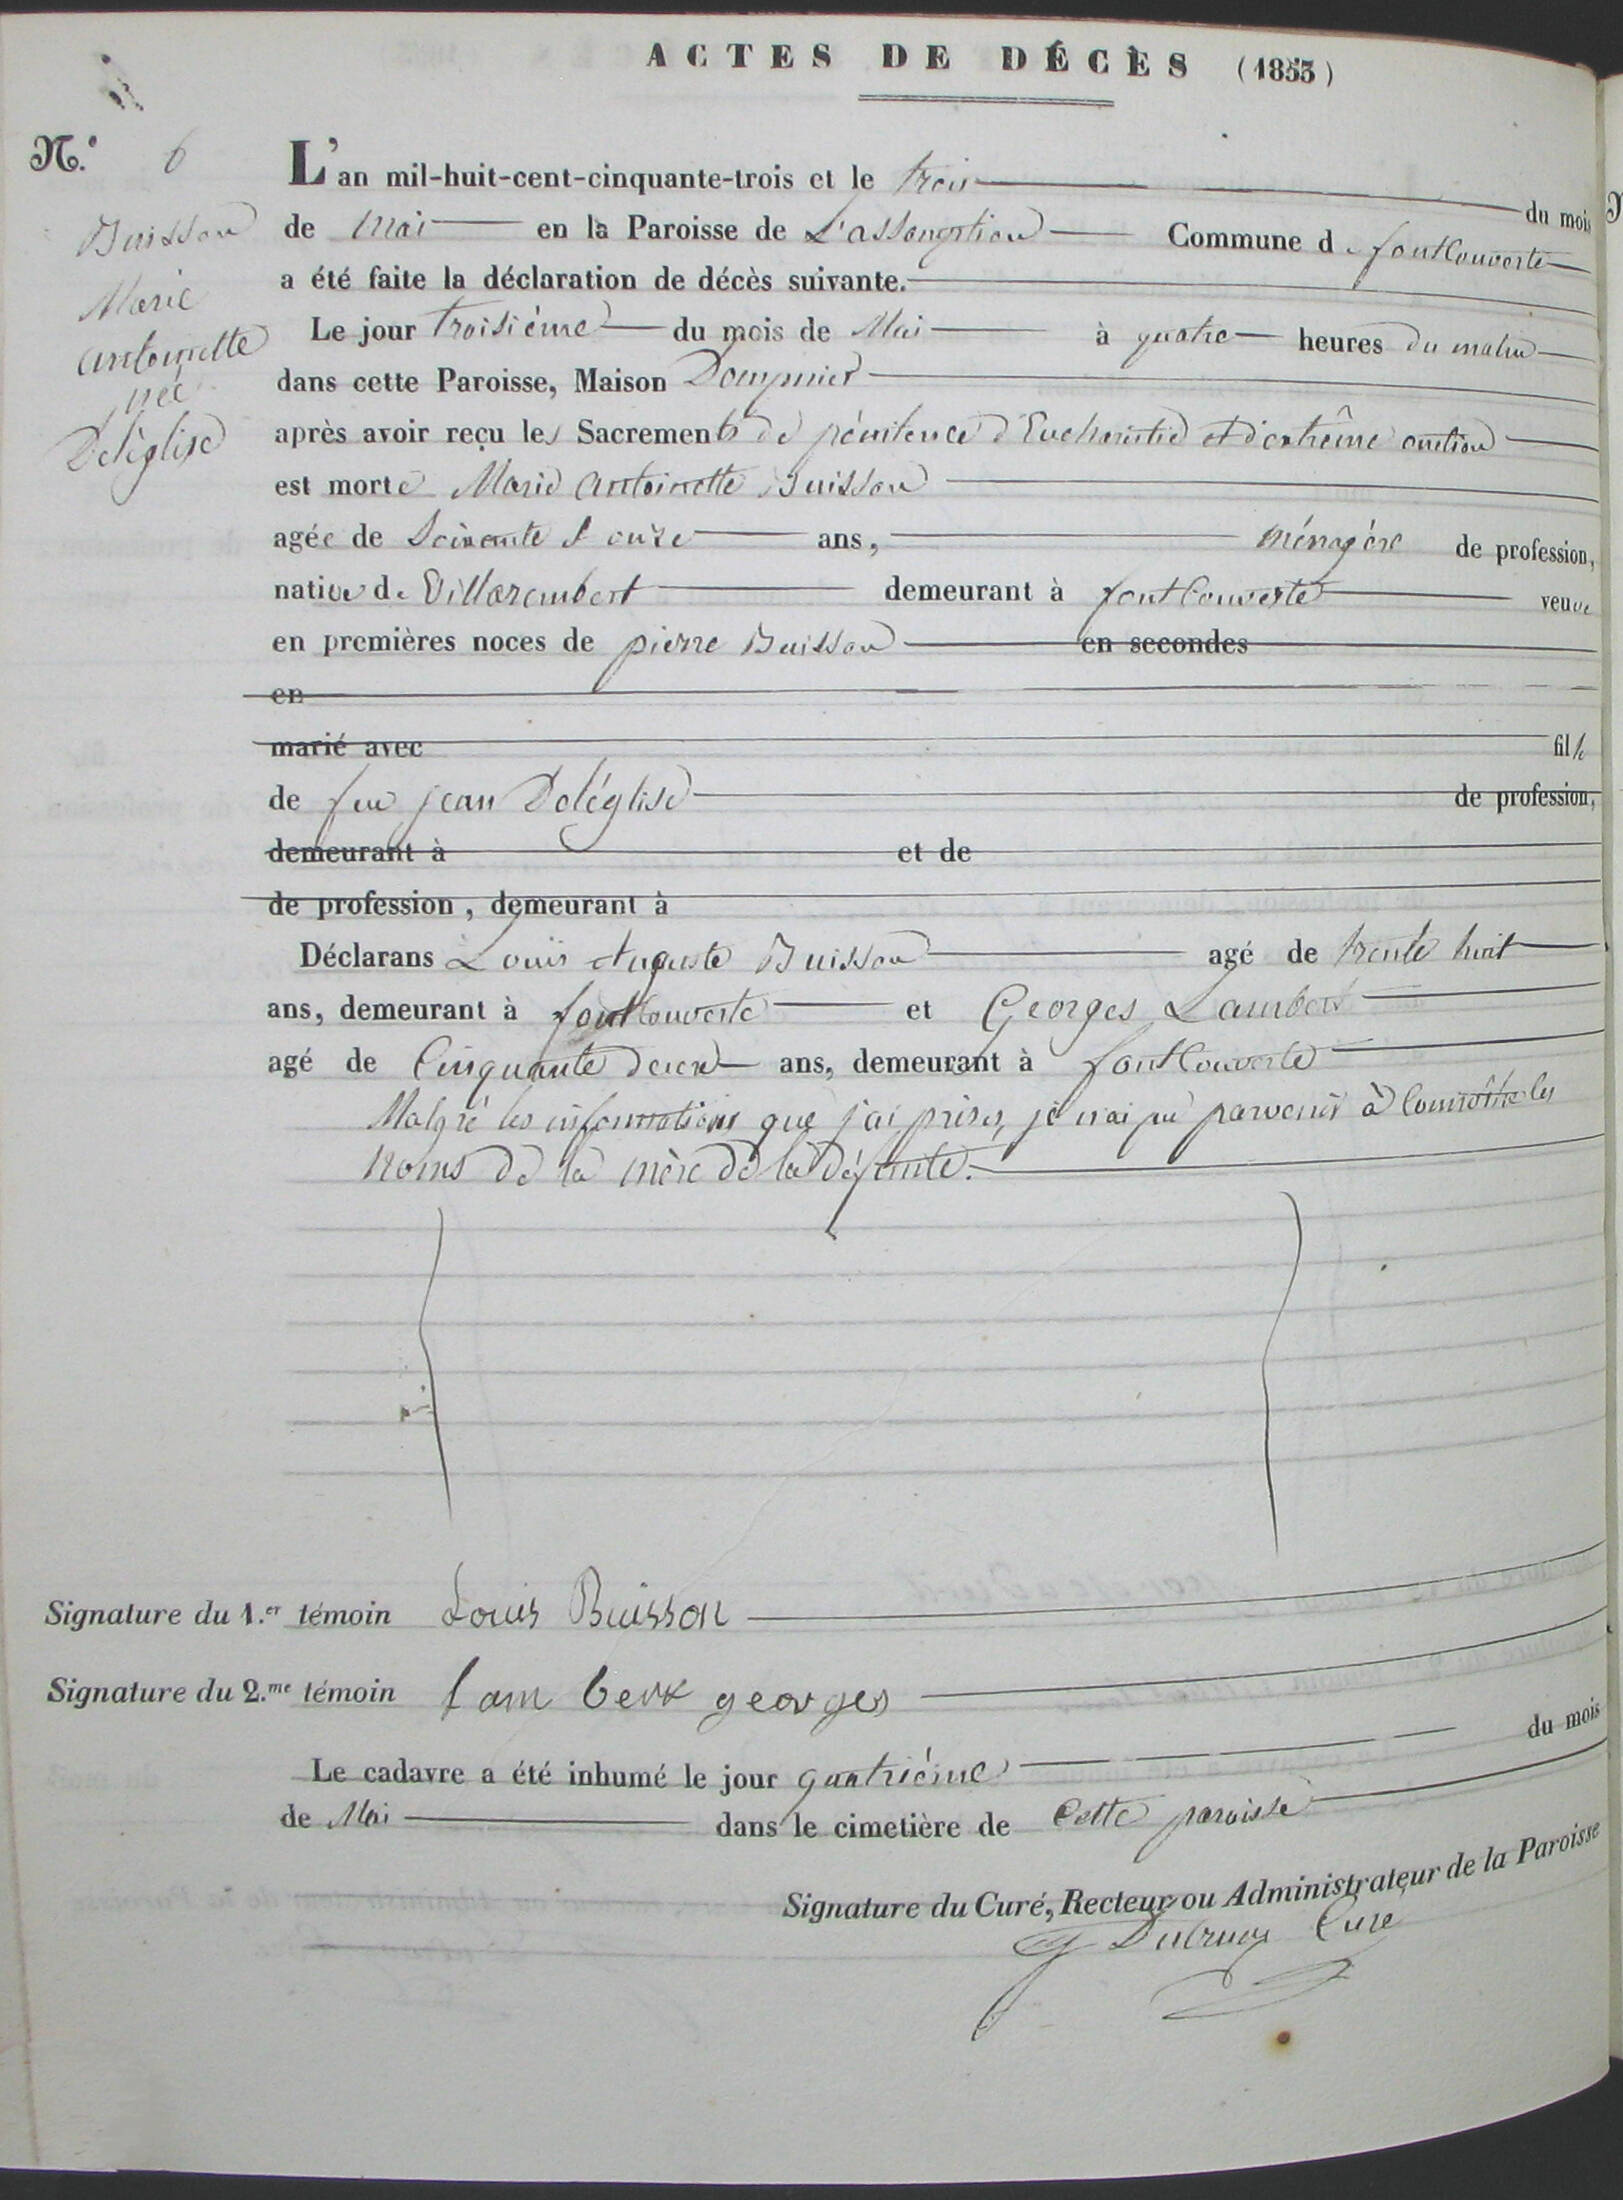 ACTES DE DÉCÈS (1853)
N.° 6
Buisson
Marie
antoinette
née
Deléglise
L'an mil-huit-cent-cinquante-trois et le trois du mois
de Mai en la Paroisse de L'assomption Commune de fontcouverte
a été faite la déclaration de décès suivante.
Le jour troisiéme du mois de Mai à quatre heures du matin
dans cette Paroisse, Maison Dompnier
après avoir reçu les Sacrements de pénitence d'Eucharistie et d'extrême onction
est morte Marie antoinette Buisson
agée de Soixante et onze ans, ménagére de profession,
native de Villarembert demeurant à fontcouverte veuve
en premières noces de pierre Buisson en secondes
en
marié avec fille
de feu jean Deléglise de profession,
demeurant à et de
de profession, demeurant à
Déclarans Louis Auguste Buisson agé de trente huit
ans, demeurant à fontcouverte et Georges Lambert
agé de Cinquante deux ans, demeurant à fontcouverte
Malgré les informations que j'ai prises, je n'ai pu parvenir à connoître les
noms de la mère de la défunte.
Signature du 1.er témoin Louis Buisson
Signature du 2.me témoin lam bert georges
Le cadavre a été inhumé le jour quatriéme du mois
de Mai dans le cimetière de cette paroisse
Signature du Curé, Recteur ou Administrateur de la Paroisse
Curé